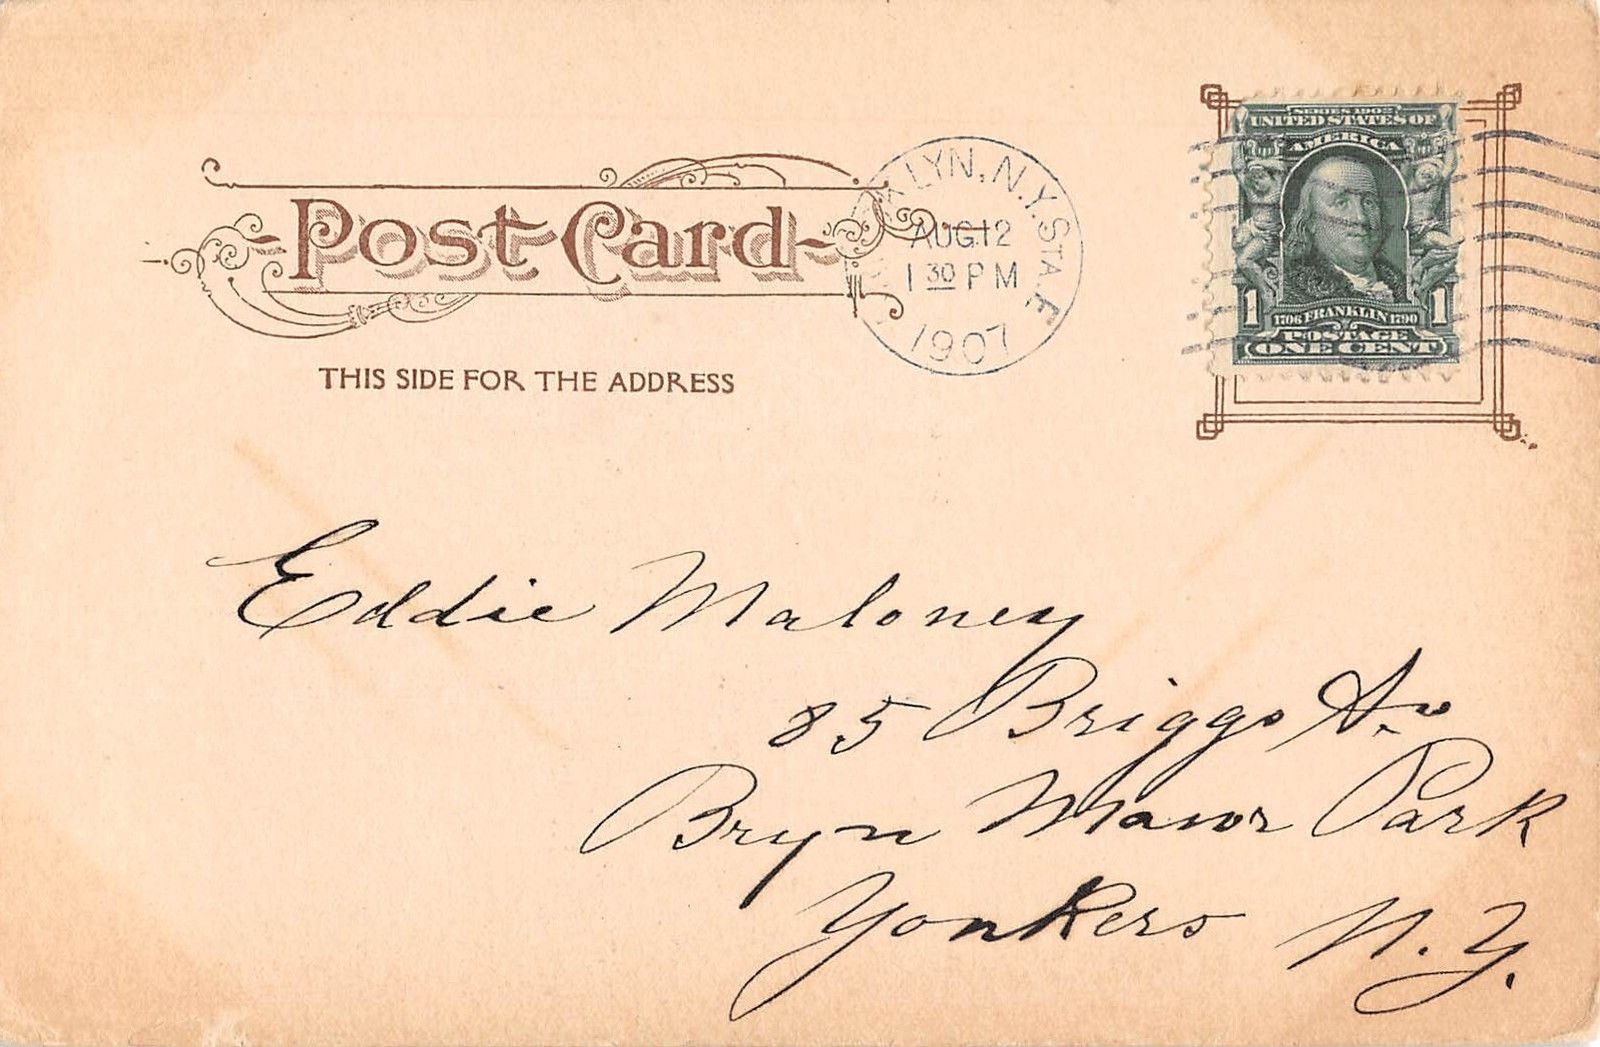 Post Card
THIS SIDE FOR THE ADDRESS
LYN, N.Y. STA. F
AUG 12
1 30 PM
1907
SERIES 1902
UNITED STATES OF
AMERICA
1 1
1706 FRANKLIN 1790
POSTAGE
ONE CENT
Eddie Maloney
85 Briggs Av
Bryn Mawr Park
Yonkers N.Y.